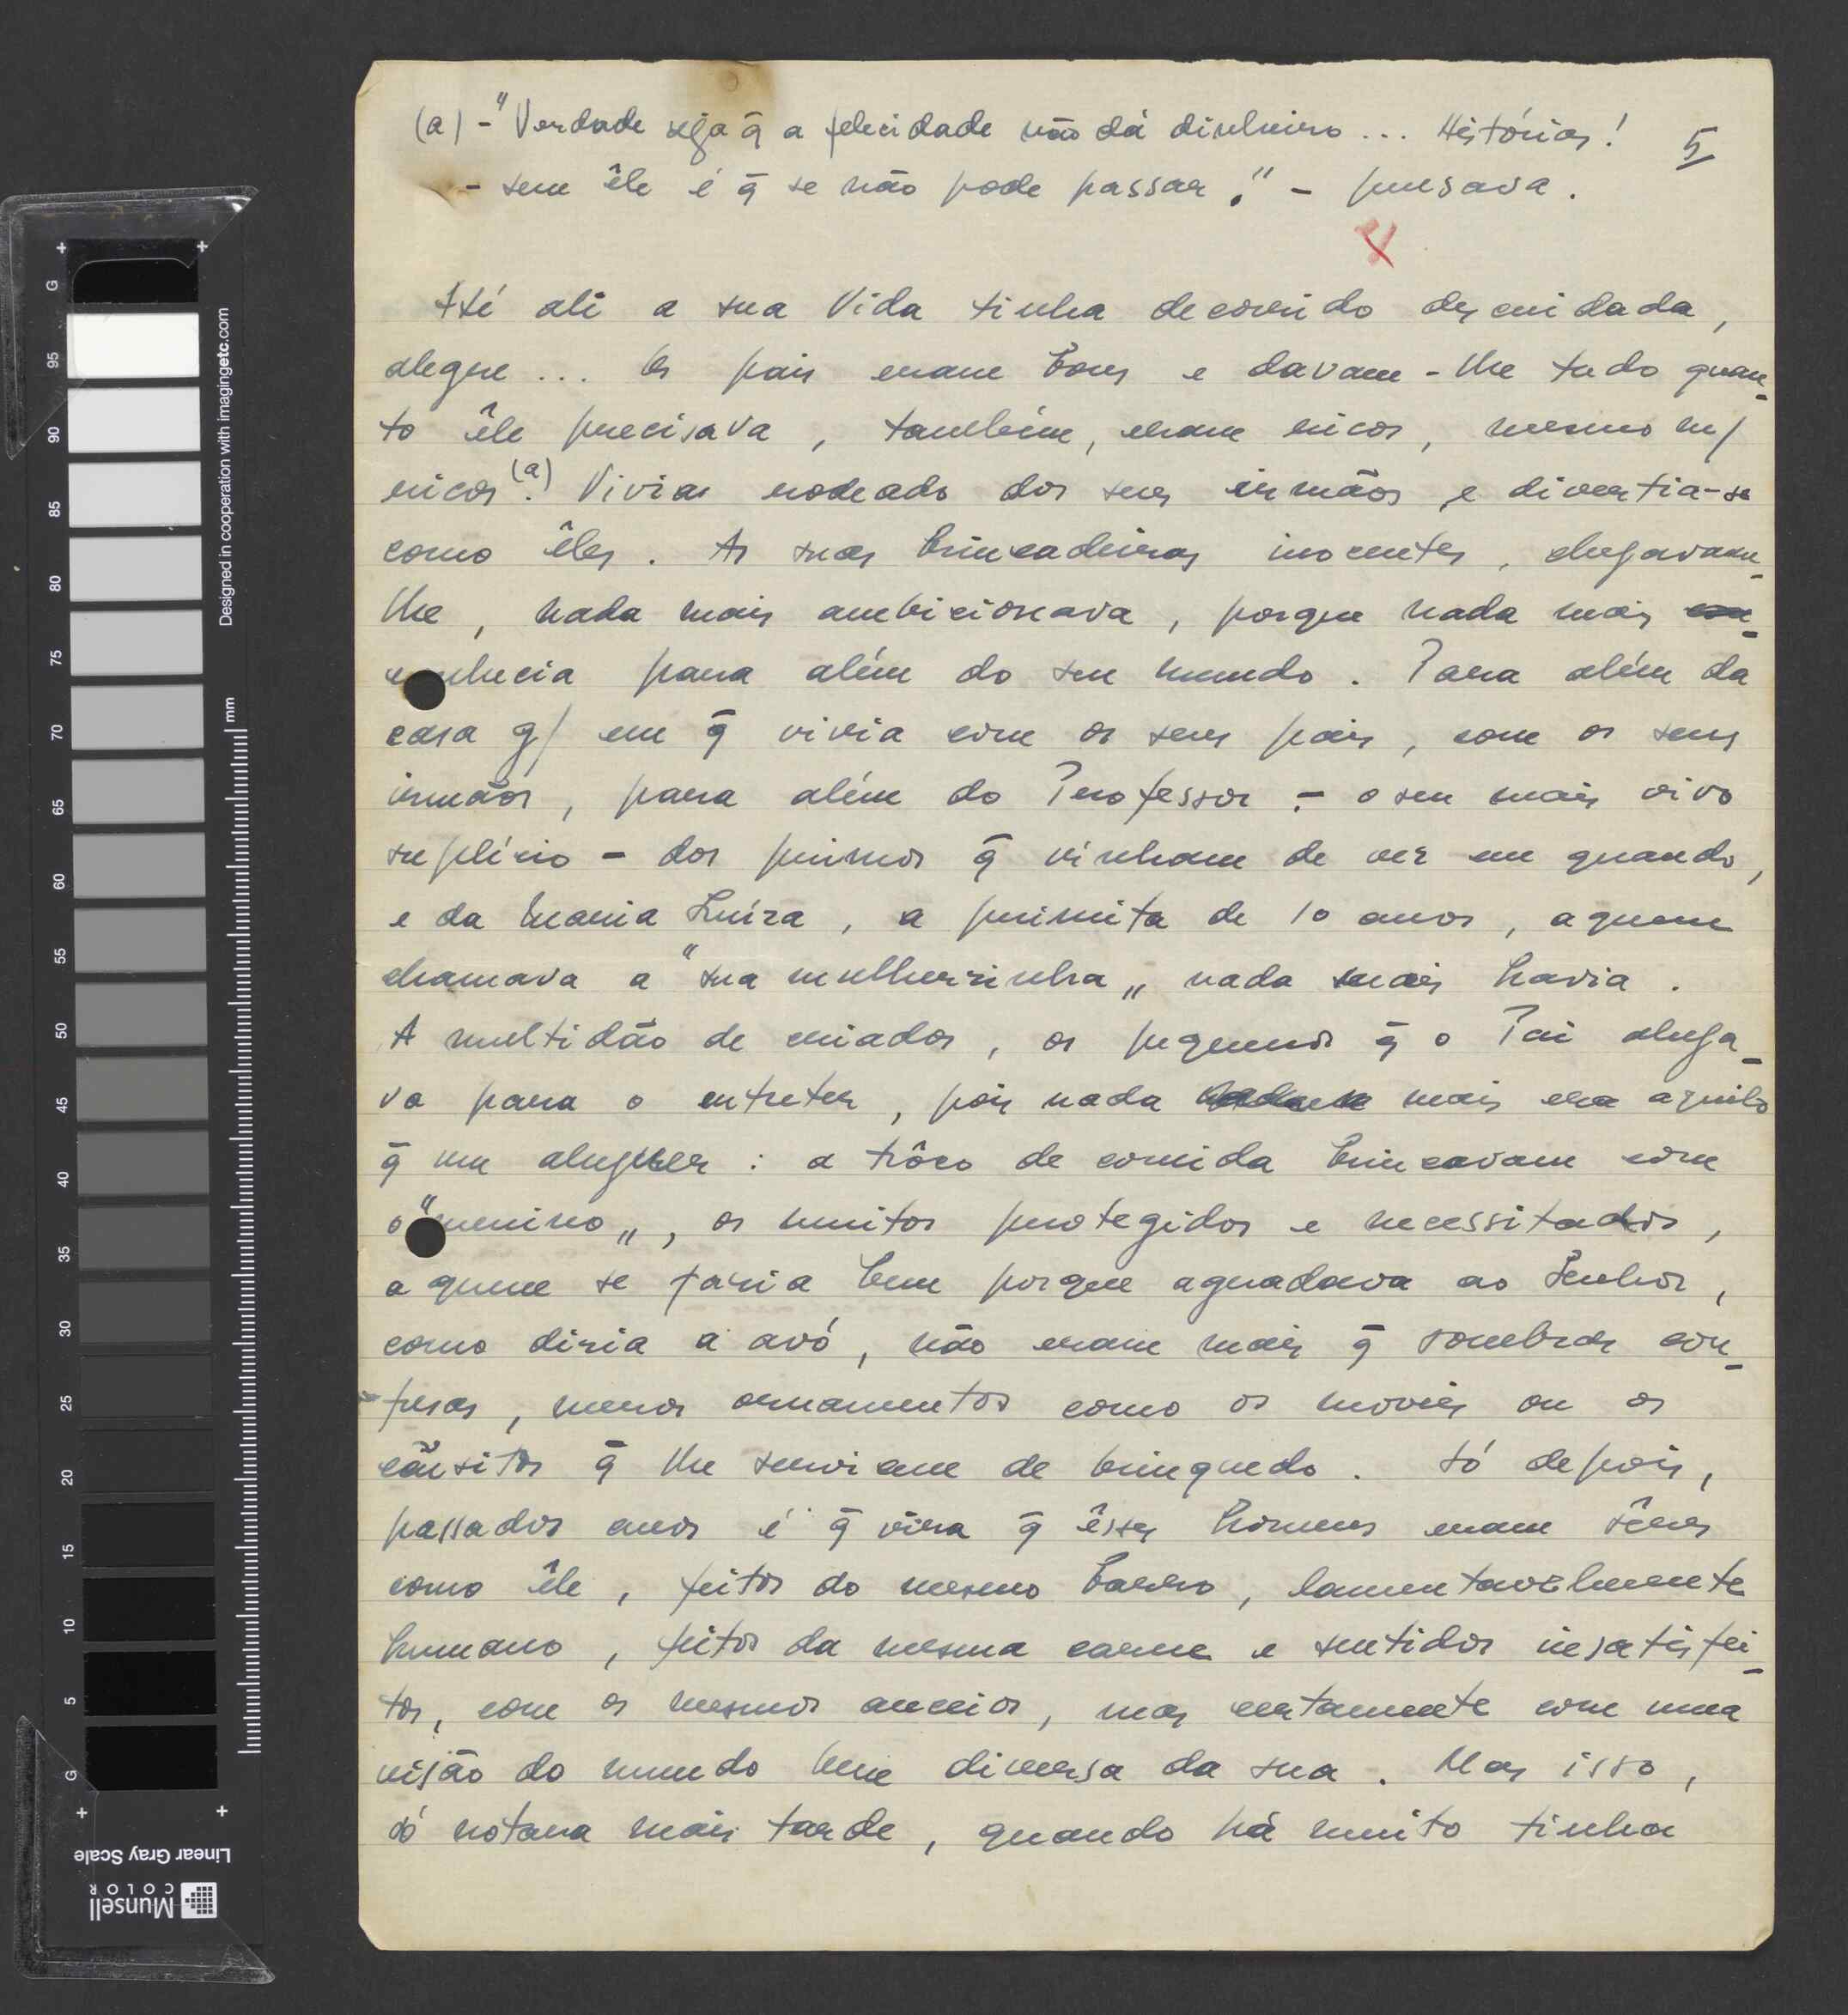 (a) - "Verdade seja q̄ a felicidade não dá dinheiro... Histórias!
5
- sem êle é q̄ se não pode passar." - pensava.
Até ali a sua Vida tinha decorrido descuidada,
alegre... Os pais eram bons e davam-lhe tudo quan-
to êle precisava, também, eram ricos, mesmo m/
ricos (a)! Vivia rodeado dos seus irmãos e divertia-se
como êles. As suas brincadeiras inocentes, chegavam-
lhe, nada mais ambicionava, porque nada mais
conhecia para além do seu mundo. Para além da
casa g/ em q̄ vivia com os seus pais, com os seus
irmãos, para além do Professor - o seu mais vivo
suplício - dos primos q̄ vinham de vez em quando,
e da Maria Luíza, a primita de 10 anos, a quem
chamava a "sua mulherzinha„ nada mais havia.
A multidão de criados, os pequenos q̄ o Pai aluga-
va para o entreter, pois nada mais era aquilo
q̄ um aluguer: a trôco de comida brincavam com
o "menino„, os muitos protegidos e necessitados,
a quem se fazia bem porque agradava ao Senhor,
como dizia a avó, não eram mais q̄ sombras con-
fusas, meros ornamentos como os moveis ou os
cãesitos q̄ lhe serviam de brinquedo. Só depois,
passados anos é q̄ vira q̄ êsses homens eram sêres
como êle, feitos do mesmo barro, lamentavelmente
humano, feitos da mesma carne e sentidos insatisfei-
tos, com os mesmos anceios, mas certamente com uma
visão do mundo bem diversa da sua. Mas isso,
só notara mais tarde, quando há muito tinha
Designed in cooperation with imagingetc.com
mm
G
95
90
85
80
75
70
65
60
55
50
45
40
35
30
25
20
15
10
5
G
Linear Gray Scale
Munsell
COLOR